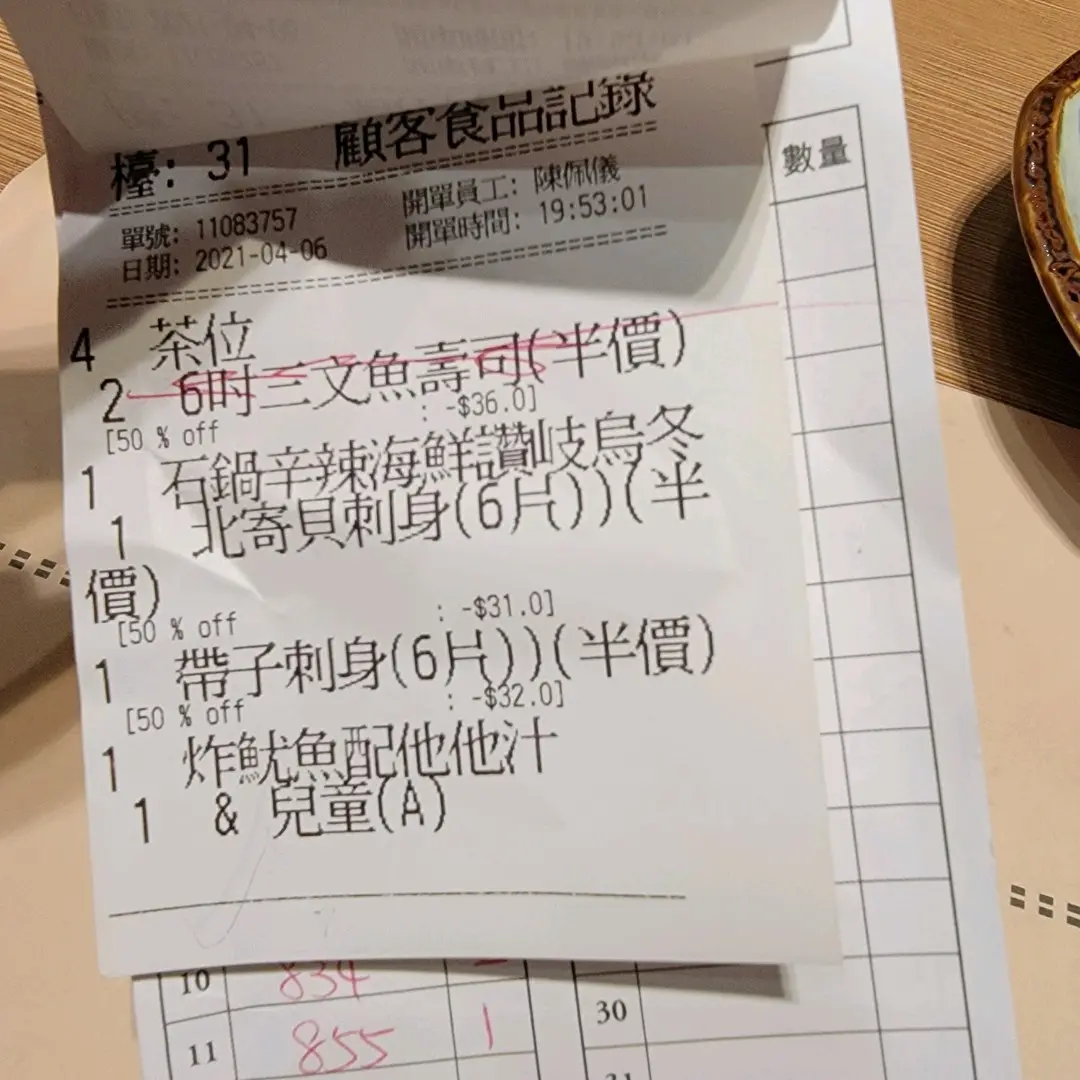 檯: 31 顧客食品記錄
單號: 11083757 開單員工: 陳佩儀
日期: 2021-04-06 開單時間: 19:53:01
4 茶位
2 6吋三文魚壽司(半價)
[50 % off : -$36.0]
1 石鍋辛辣海鮮讚岐烏冬
1 北寄貝刺身(6片))(半
價)
[50 % off : -$31.0]
1 帶子刺身(6片))(半價)
[50 % off : -$32.0]
1 炸魷魚配他他汁
1 & 兒童(A)
數量
10 834
11 855 1
30
31